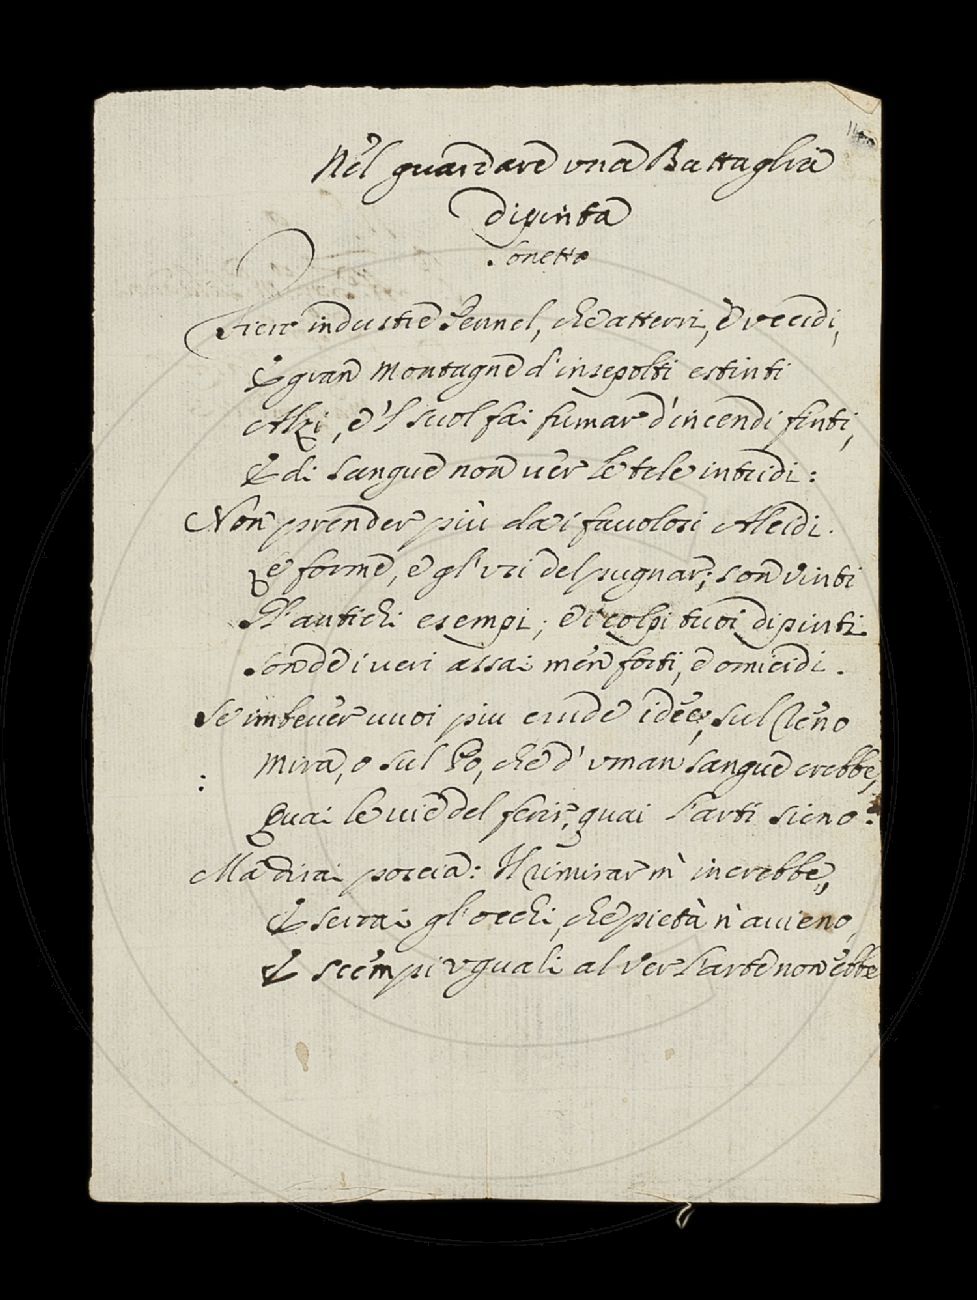 Nel guardare vna Battaglia
dipinta
Sonetto
Fiero industre Pennel, che atterri, e vccidi,
E gran montagne d'insepolti estinti
Alzi, e 'l suol fai fumar d'incendj finti,
E di sangue non ver le tele intridi:
Non prender più da i fauolosi Alcidi.
Le forme, e gl'vsi del pugnar; son vinti
Gl'antichi esempi; e i colpi tuoi dipinti
Son de i veri assai men forti, e omicidi.
Se imbeuer vuoi piu crude idee, sul Reno
Mira, o sul Po, che d'vman sangue crebbe,
Quai le vie del ferir, quai l'arti sieno:
Ma dirai poscia: Il rimirar m'increbbe,
E serrai gl'occhi, che pietà n'auieno,
E scempi vguali al ver l'arte non ebbe